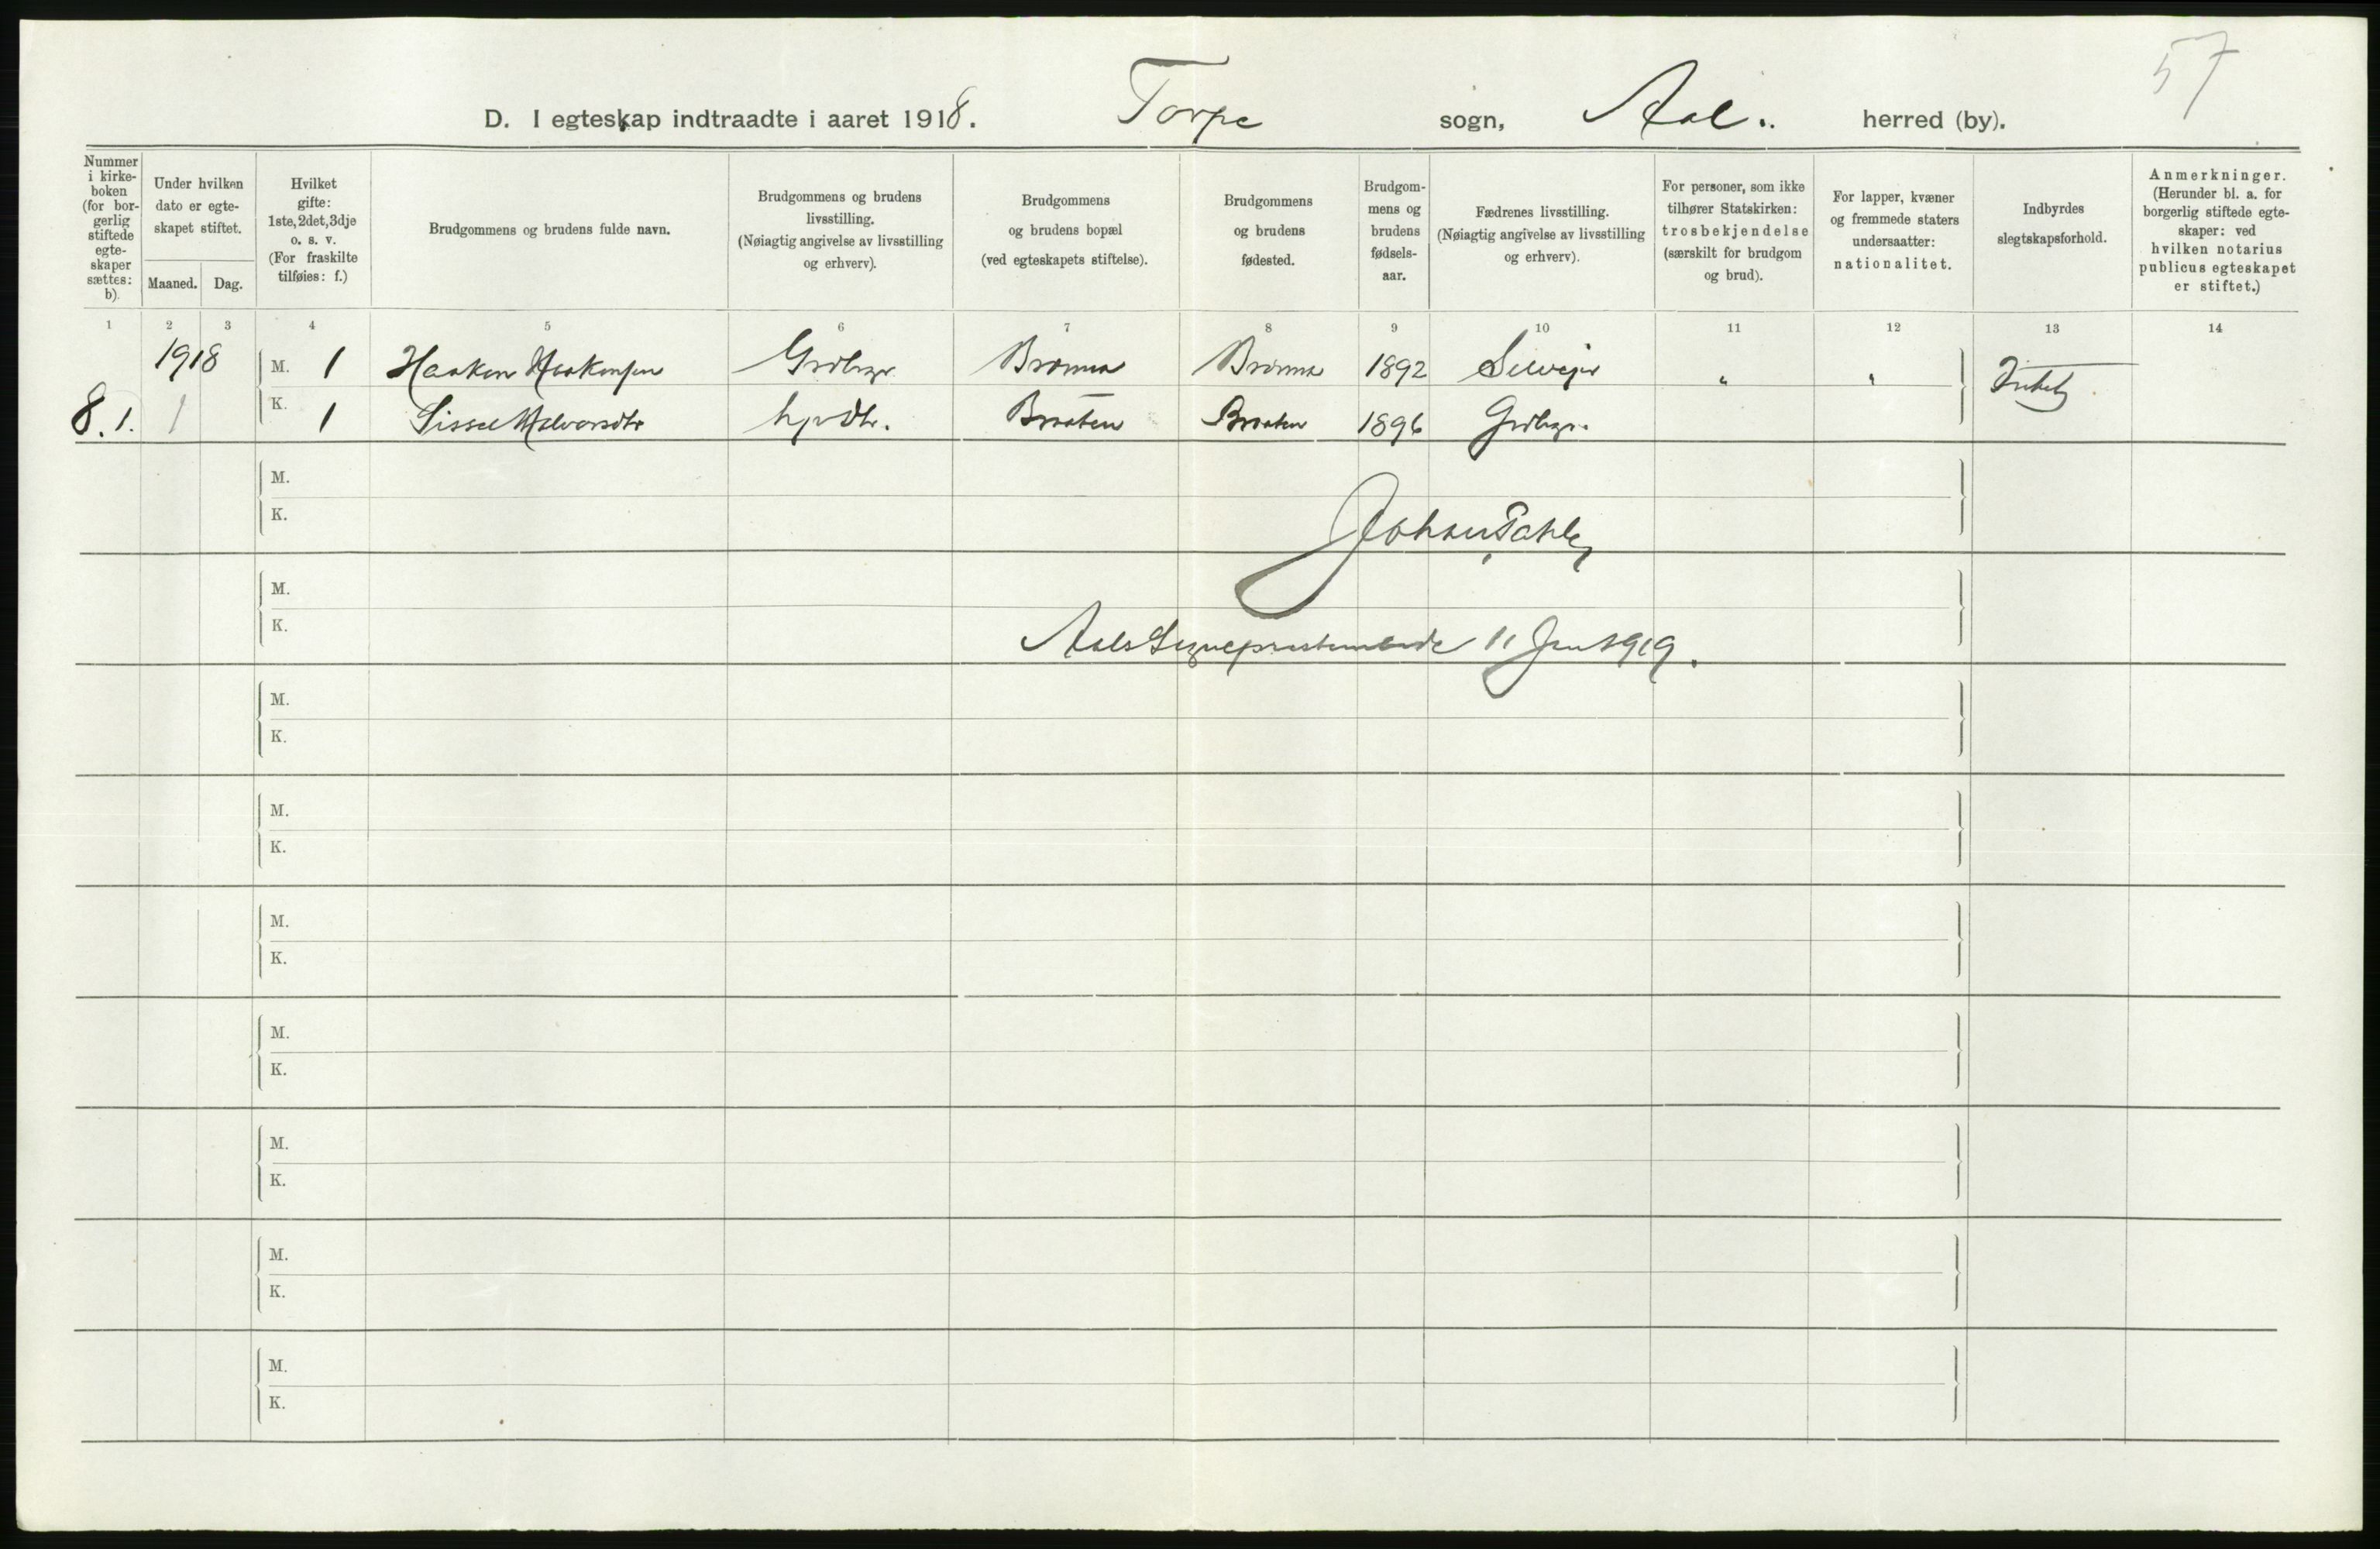 57
D. I egteskap indtraadte i aaret 1918. Torpe sogn, Aal. herred (by).
Nummer i kirkeboken (for borgerlig stiftede egteskaper sættes: b).
Under hvilken dato er egteskapet stiftet.
Maaned. Dag.
Hvilket gifte: 1ste, 2det, 3dje o. s. v. (For fraskilte tilføies: f.)
Brudgommens og brudens fulde navn.
Brudgommens og brudens livsstilling. (Nøiagtig angivelse av livsstilling og erhverv).
Brudgommens og brudens bopæl (ved egteskapets stiftelse).
Brudgommens og brudens fødested.
Brudgommens og brudens fødselsaar.
Fædrenes livsstilling. (Nøiagtig angivelse av livsstilling og erhverv).
For personer, som ikke tilhører Statskirken: trosbekjendelse (særskilt for brudgom og brud).
For lapper, kvæner og fremmede staters undersaatter: nationalitet.
Indbyrdes slegtskapsforhold.
Anmerkninger. (Herunder bl. a. for borgerlig stiftede egteskaper: ved hvilken notarius publicus egteskapet er stiftet.)
1 2 3 4 5 6 7 8 9 10 11 12 13 14
1918 M. 1 Haaken Haakensen Grdbrgr 1892 " " Intet
8. 1. 1 K. 1 Sissel Halvorsdtr Braaten Braaten 1896 Grdbrgr.
M.
K.
Johan
M.
K.
Aals Sogneprestembede 11 Jan 1919.
M.
K.
M.
K.
M.
K.
M.
K.
M.
K.
M.
K.
M.
K.